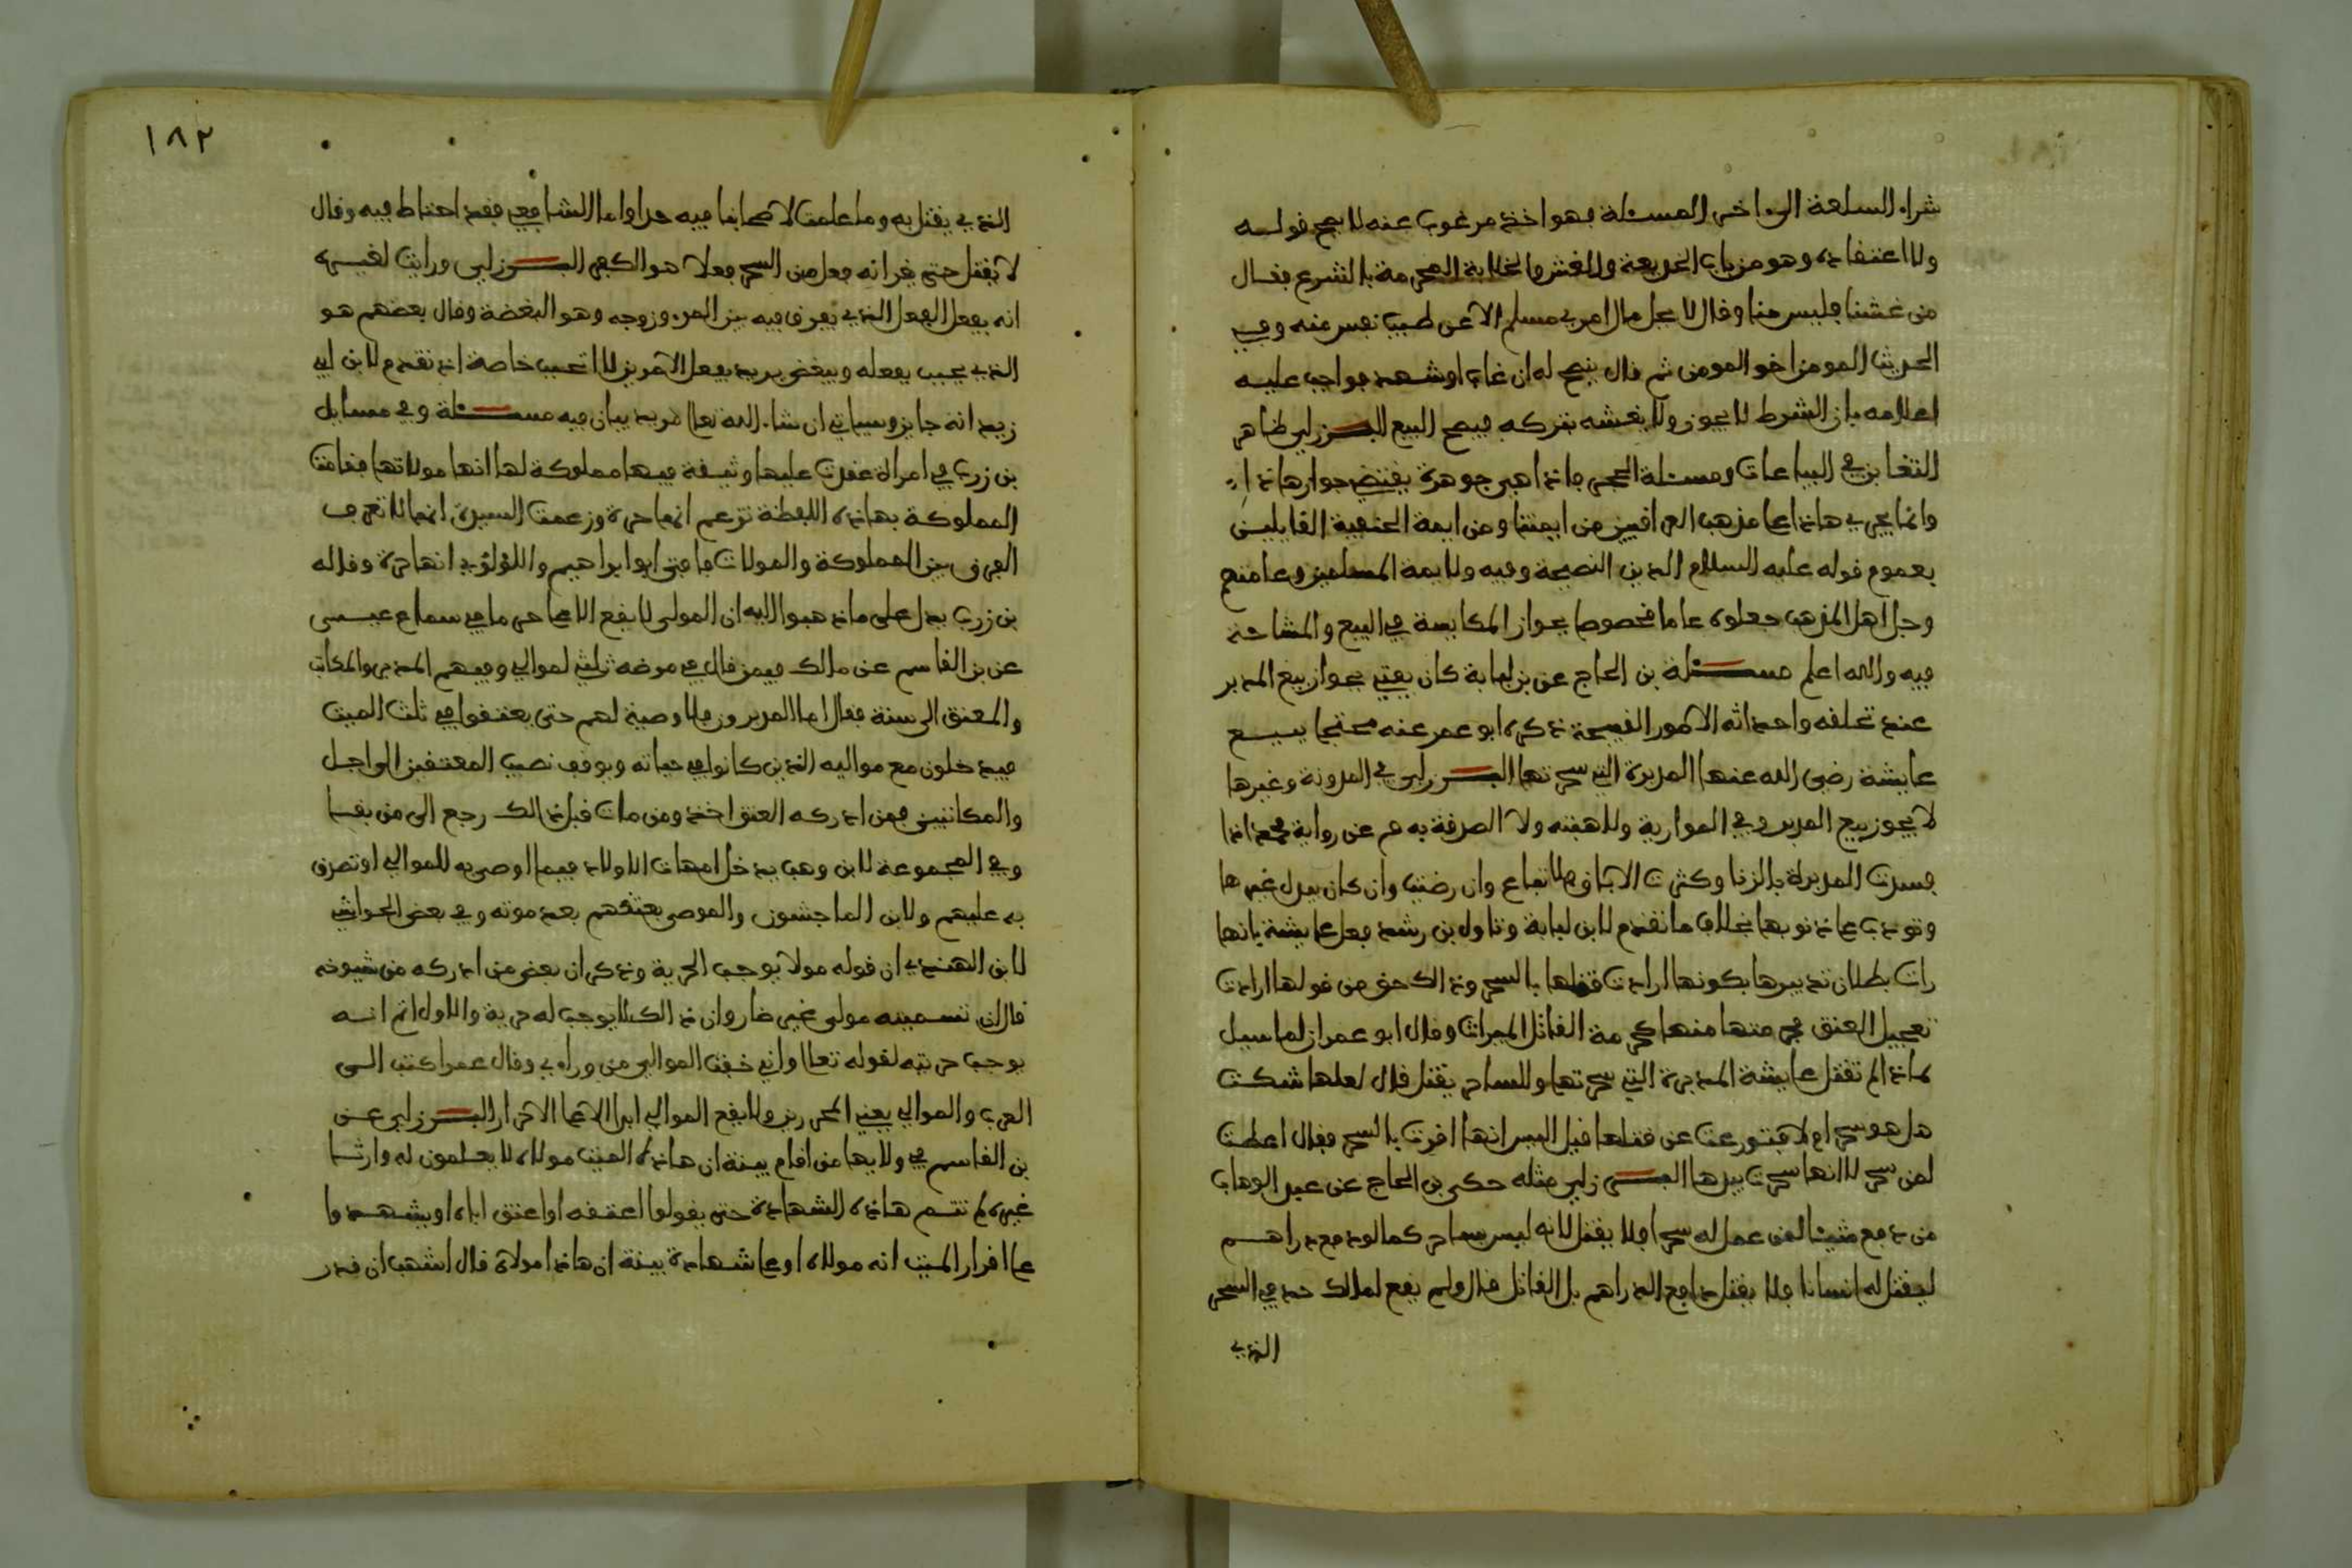 شراء السلعة الى اخر المسئلة فهو اخذ مرغوب عنه لا يصح قوله
ولا اعتقاده وهو من باب الخديعة والغش والخلابة المحرمة بالشرع فقال
من غشنا فليس منا وقال لا يحل مال امرئ مسلم الا عن طيب نفس منه وفي
الحديث المومن اخو المومن ثم قال ينصح له ان غاب او شهد فواجب عليه
اعلامه بان الشرط لا يجوز ولا يغشه بتركه فيصح البيع البرزلي ظاهر
التغابن في البياعات ومسئلة الحجر فاذا هي جوهرة يقتضي جواز هاذا
وانما يجري هاذا على مذهب العراقيين من ايمتنا ومن ايمة الحنفية القايلين
بعموم قوله عليه السلام الدين النصيحة وفيه ولايمة المسلمين وعامتهم
وجل اهل المذهب جعلوه عاما مخصوصا بجواز المكايسة في البيع والمشاحة
فيه والله اعلم مسئلة بن الحاج عن بن لبابة كان يفتي بجواز بيع المدبر
عند تخلفه واحداثه الامور القبيحة ذكره ابو عمر عنه محتجا ببيع
عايشة رضي الله عنها المدبرة التي سحرتها البرزلي في المدونة وغيرها
لا يجوز بيع المدبر وفي الموازية ولا هبته ولا الصدقة به م عن رواية محمد اذا
فسدت المدبرة بالزنا وكثرت الاباق فلا تباع وان رضيت وان كان يبدل غيرها
وتودب على ذنوبها بخلاف ما تقدم لابن لبابة وتاول بن رشد فعل عايشة بانها
رات بطلان تدبيرها بكونها ارادت قتلها بالسحر وذالك حق من قولها ارادت
تعجيل العتق فحرمتها منها كحرمة القاتل الميراث وقال ابو عمران لما سيل
لماذا لم تقتل عايشة المدبرة التي سحرتها والساحر يقتل قال لعلها شكت
هل هو سحر ام لا فتورعت عن قتلها قيل اليس انها اقرت بالسحر فقال اعطت
لمن سحر لا انها سحرت بيدها البرزلي مثله حكى بن الحاج عن عبد الوهاب
من دفع شيئا لمن عمل له سحرا فلا يقتل لانه ليس بساحر كما لو دفع دراهم
ليقتل له انسانا فلا يقتل دافع الدراهم بل القاتل قال ولم يقع لمالك حد في السحر
الذي
١٨٢
الذي يقتل به وما علمت لاصحابنا فيه حدا واما الشافعي فقد احتاط فيه وقال
لا يقتل حتى يقر انه فعل من السحر فعلا هو الكفر البرزلي ورايت لغيره
انه يفعل الفعل الذي يفرق فيه بين المرء وزوجه وهو البغضة وقال بعضهم هو
الذي يحبب بفعله ويبغض يريد يفعل الامرين لا التحبب خاصة اذ تقدم لابن ابي
زيد انه جايز وسياتي ان شاء الله تعالى مزيد بيان فيه مسئلة وفي مسايل
بن زرب في امراة عقدت عليها وثيقة فيها مملوكة لها انها مولاتها فقامت
المملوكة بهاذه اللفظة تزعم انها حرة وزعمت السيدة انها لا تعرف
الفرق بين المملوكة والمولات فافتى ابو ابراهيم واللؤلؤي انها حرة وقاله
بن زرب يدل على ما ذهبوا اليه ان المولى لا يقع الا على حر ما في سماع عيسى
عن بن القاسم عن مالك فيمن قال في مرضه ثلثي لموالي وفيهم المدبر والمكاتب
والمعتق الى سنة فقال اما المدبرون فلا وصية لهم حتى يعتقوا في ثلث الميت
فيدخلون مع مواليه الذين كانوا في حياته ويوقف نصيب المعتقين الى اجل
والمكاتبين فمن ادركه العتق اخذه ومن مات قبل ذالك رجع الى من بقي
وفي المجموعة لابن وهب يدخل امهات الاولاد فيما اوصى به للموالي او تصدق
به عليهم ولابن الماجشون والموصى بعتقهم بعد موته وفي بعض الحواشي
لابن الهندي ان قوله مولاي يوجب الحرية وذكر ان بعض من ادركه من شيوخه
قال ان تسميته مولى غير ضار وان ذالك لا يوجب له حرية والاول اتم انه
يوجب حريته لقوله تعالى واني خفت الموالي من وراءي وقال عمر اكتب الى
العرب والموالي يعني المحررين ولا يقع الموالي ابدا الا على الاحرار البرزلي عن
بن القاسم في ولايها من اقام بينة ان هاذا الميت مولاه لا يعلمون له وارثا
غيره لم تتم هاذه الشهادة حتى يقولوا اعتقه او اعتق اباه او يشهدوا
على اقرار الميت انه مولاه او على شهادة بينة ان هاذا مولاه قال اشهب ان قدر